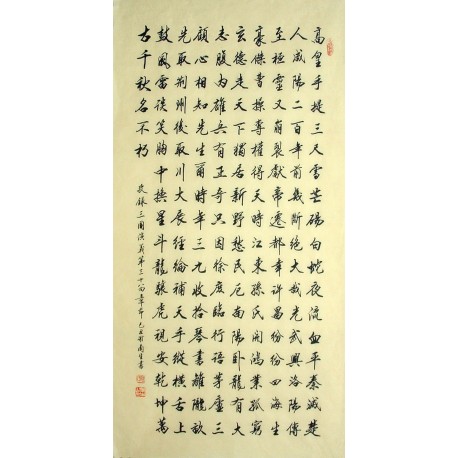 高皇手提三尺雪芒碭白蛇夜流血平秦滅楚
入咸陽二百年前幾斷絕大哉光武興洛陽傳
至桓靈又崩裂獻帝遷都幸許昌紛紛四海生
豪傑曹操專權得天時江東孫氏開鴻業孤窮
玄德走天下獨居新野愁民厄南陽臥龍有大
志腹內雄兵有正奇只因徐庶臨行語茅廬三
顧心相知先生爾時年三九收拾琴書離隴畝
先取荊州後取川大展經綸補天手縱橫舌上
鼓風雷談笑胸中換星斗龍驤虎視安乾坤萬
古千秋名不朽
錄三國演義第三十八回章節己丑